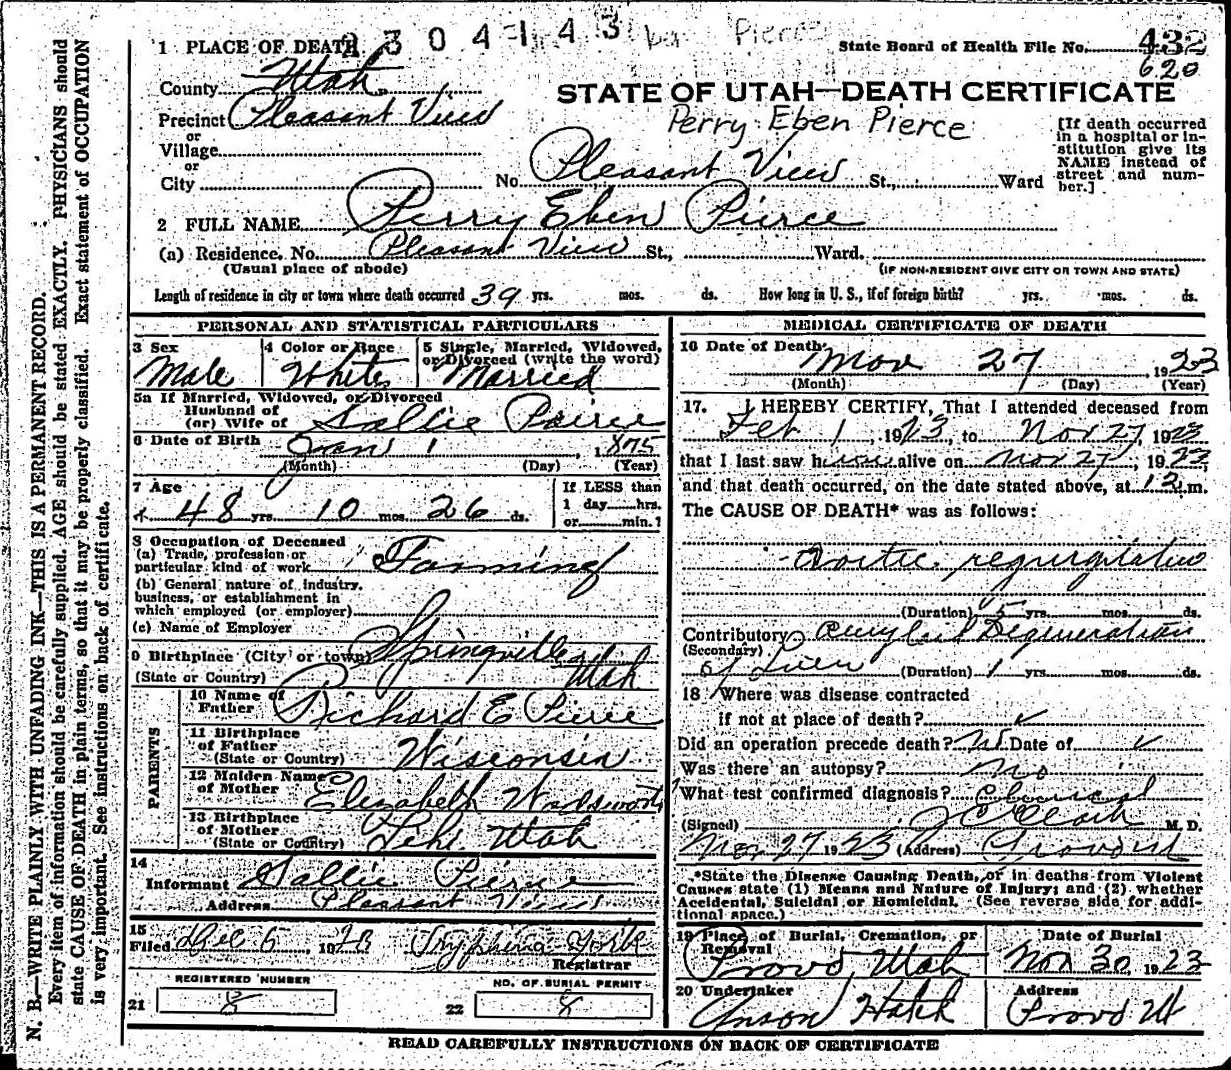 2304143 Pierce
1 PLACE OF DEATH
State Board of Health File No. 432
620
County Utah
STATE OF UTAH—DEATH CERTIFICATE
Precinct Pleasant View
Perry Eben Pierce
[If death occurred in a hospital or institution give its NAME instead of street and number.]
or
Village
or
City No. Pleasant View St., Ward
2 FULL NAME Perry Eben Pierce
(a) Residence. No. Pleasant View St., Ward.
(Usual place of abode) (IF NON-RESIDENT GIVE CITY OR TOWN AND STATE)
Length of residence in city or town where death occurred 39 yrs. mos. ds. How long in U. S., if of foreign birth? yrs. mos. ds.
PERSONAL AND STATISTICAL PARTICULARS
3 Sex
Male
4 Color or Race
White
5 Single, Married, Widowed, or Divorced (write the word)
Married
5a If Married, Widowed, or Divorced
Husband of
(or) Wife of Sallie Pierce
6 Date of Birth Jan 1, 1875
(Month) (Day) (Year)
7 Age
48 yrs. 10 mos. 26 ds.
If LESS than
1 day hrs.
or min.?
8 Occupation of Deceased
(a) Trade, profession or
particular kind of work Farming
(b) General nature of industry.
business, or establishment in
which employed (or employer)
(c) Name of Employer
9 Birthplace (City or town) Springville
(State or Country) Utah
PARENTS
10 Name of
Father Richard E Pierce
11 Birthplace
of Father
(State or Country) Wisconsin
12 Maiden Name
of Mother Elizabeth Wadsworth
13 Birthplace
of Mother
(State or Country) Lehi Utah
14
Informant Sallie Pierce
Address Pleasant View
15
Filed Dec 5, 1923 Tryphena York
Registrar
REGISTERED NUMBER
21 8
NO. OF BURIAL PERMIT
22 8
MEDICAL CERTIFICATE OF DEATH
16 Date of Death Nov 27, 1923
(Month) (Day) (Year)
17. I HEREBY CERTIFY, That I attended deceased from
Feb 1, 1923, to Nov 27, 1923
that I last saw him alive on Nov 27, 1923,
and that death occurred, on the date stated above, at 12 m.
The CAUSE OF DEATH* was as follows:
Aortic regurgitation
(Duration) 5 yrs. mos. ds.
Contributory Amyloid Degeneration
(Secondary)
of Liver (Duration) 1 yrs. mos. ds.
18 Where was disease contracted
if not at place of death? ✓
Did an operation precede death? No Date of ✓
Was there an autopsy? No
What test confirmed diagnosis? Clinical
(Signed) M. D.
Nov 27 1923 (Address) Provo Ut
*State the Disease Causing Death, or in deaths from Violent
Causes state (1) Means and Nature of Injury; and (2) whether
Accidental, Suicidal or Homicidal. (See reverse side for addi-
tional space.)
19 Place of Burial, Cremation, or
Removal
Provo, Utah
Date of Burial
Nov 30, 1923
20 Undertaker
Anson Hatch
Address
Provo Ut
READ CAREFULLY INSTRUCTIONS ON BACK OF CERTIFICATE
N. B.—WRITE PLAINLY WITH UNFADING INK—THIS IS A PERMANENT RECORD.
Every item of information should be carefully supplied. AGE should be stated EXACTLY. PHYSICIANS should
state CAUSE OF DEATH in plain terms, so that it may be properly classified. Exact statement of OCCUPATION
is very important. See instructions on back of certificate.